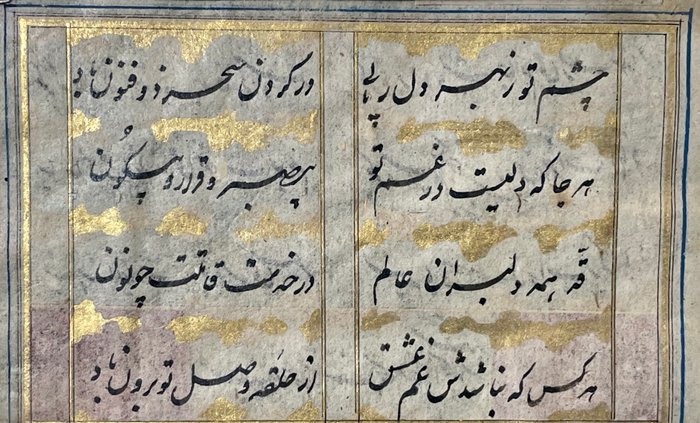 چشم تو ز بهر دل ربایی در کردن سحر ذو فنون باد
هر جا که دلیست در غم تو بی صبر و قرار و بی سکون
قد همه دلبران عالم در خدمت قامتت چو نون
هر کس که نباشدش غم عشق از حلقه وصل تو برون باد